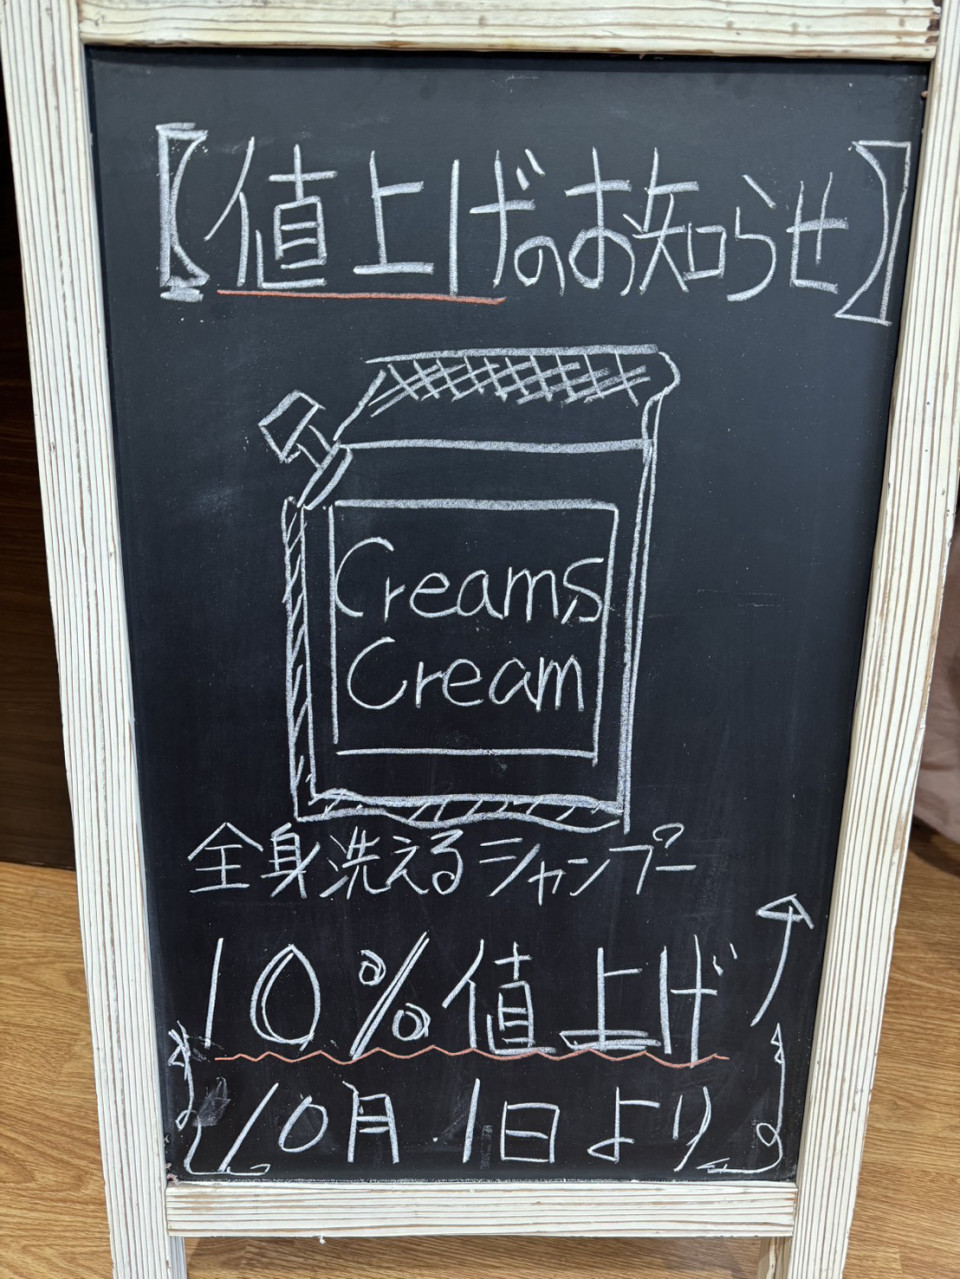 【値上げのお知らせ】
Creams
Cream
全身洗えるシャンプー
10%値上げ
10月1日より